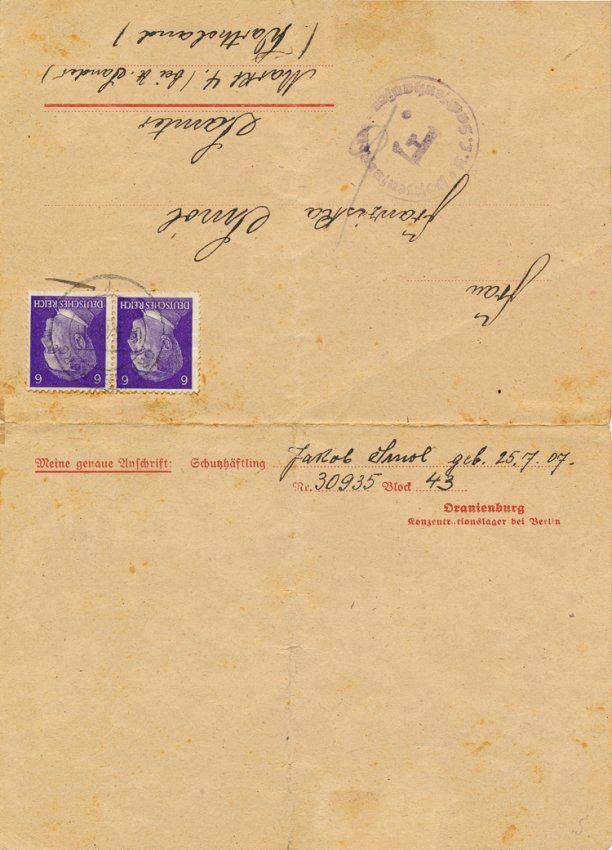 6 6
DEUTSCHES REICH DEUTSCHES REICH
Frau
Franziska Smol
Postzensurstelle
F.
Sachsenhausen
Samter
Markt 4. (bei Sander)
(Wartheland)
Meine genaue Anschrift: Schutzhäftling Jakob Smol geb. 25.7.07.
Nr. 30935 Block 43
Oranienburg
Konzentrationslager bei Berlin